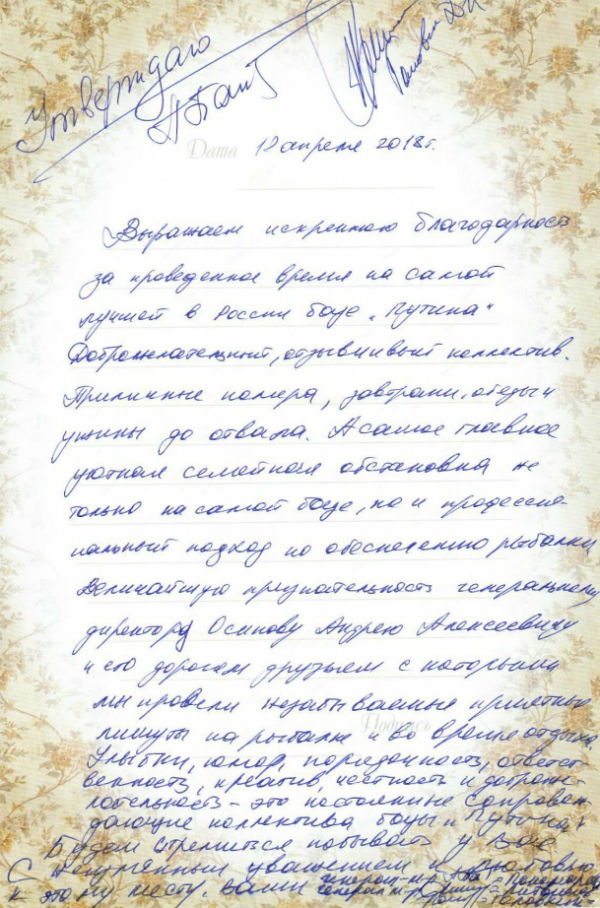 Утверждаю
Дата 18 апреля 2018г.
Выражаем искреннюю благодарность
за проведенное время на самой
лучшей в России базе „Путина“
Доброжелательный, отзывчивый коллектив.
Приличные номера, завтраки, обеды и
ужины до отвала. А самое главное
уютная семейная обстановка не
только на самой базе, но и професси-
нальный подход по обеспечению рыбалки
Величайшую признательность генеральному
директору Осипову Андрею Алексеевичу
и его дорогим друзьям с которыми
мы провели незабываемые приятные
Подпись
минуты на рыбалке и во время отдыха.
Улыбки, юмор, порядочность, ответст-
венность, креатив, честность и доброже-
лательность - это постоянные сопровож-
дающие коллектива базы „Путина“
Будем стремиться побывать у Вас
С искренним уважением и любовью
к этому месту. Ваши генерал-м-р
генерал-м-р